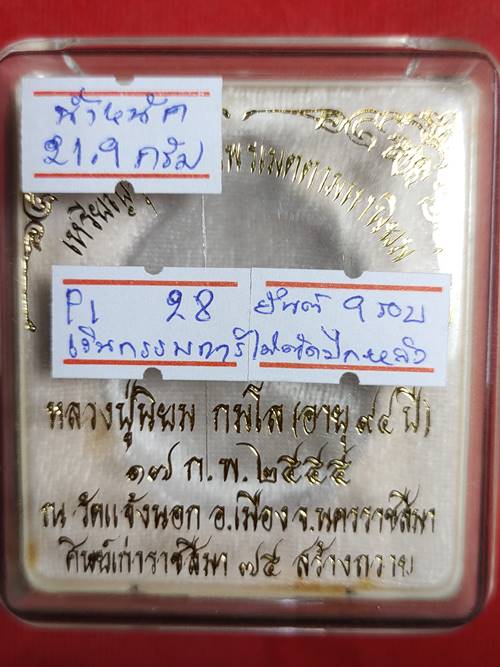 น้ำหนัก
21.9 กรัม
เหรียญ
เมตตามหานิยม
P1 28 ยันต์ 9 รอบ
เงินกรรมการไม่ตัดปีกหลัง
หลวงปู่นิยม กมโล (อายุ ๙๔ ปี)
๑๗ ก.พ. ๒๕๕๕
ณ วัดแจ้งนอก อ.เมือง จ.นครราชสีมา
ศิษย์เก่าราชสีมา ๗๕ สร้างถวาย